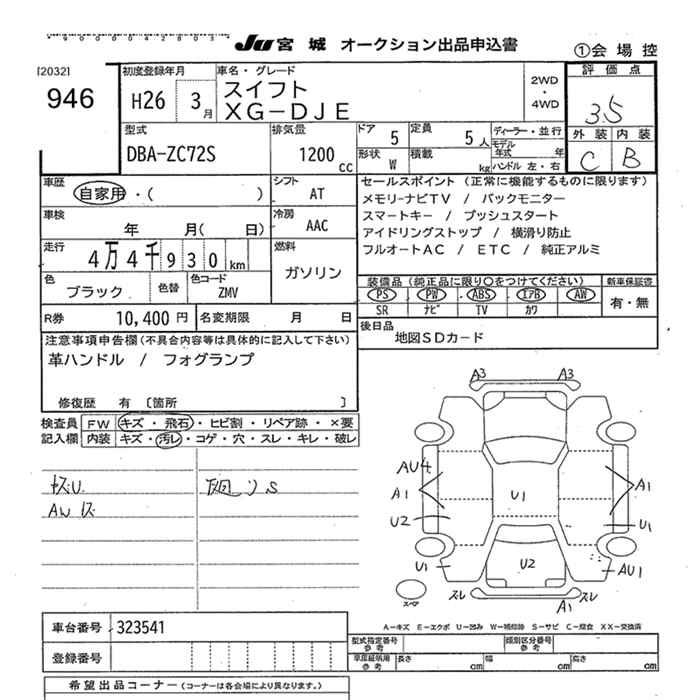 Ju 宮城 オークション出品申込書
①会場控
[2032]
946
初度登録年月
H26 3月
車名・グレード
スイフト
XG-DJE
2WD
・
4WD
評価点
3.5
外装 内装
C B
型式
DBA-ZC72S
排気量
1200cc
ドア 5
定員 5人
ディーラー・並行
モデル年式 年
形状 W
積載 kg
ハンドル 左・右
車歴
自家用・( )
シフト
AT
車検
年 月( 日)
冷房
AAC
走行
4万4千930km
燃料
ガソリン
色
ブラック
色替
色コード
ZMV
セールスポイント (正常に機能するものに限ります)
メモリーナビTV / バックモニター
スマートキー / プッシュスタート
アイドリングストップ / 横滑り防止
フルオートAC / ETC / 純正アルミ
装備品(純正品に限り○をつけてください)
新車保証書
PS PW ABS エアB AW
SR ナビ TV カワ
有・無
R券 10,400円
名変期限 月 日
後日品
地図SDカード
注意事項申告欄(不具合内容等は具体的に記入して下さい)
革ハンドル / フォグランプ
修復歴 有 [箇所 ]
検査員
記入欄
FW キズ・飛石・ヒビ割・リペア跡・×要
内装 キズ・汚レ・コゲ・穴・スレ・キレ・破レ
AW
S
A3 A3
AU4
A1 A1
U1
U2 U1
U1 U2 AU1
スレ スレ
A1
スペア
A-キズ E-エクボ U-凹み W-補修跡 S-サビ C-腐食 XX-交換済
車台番号 323541
登録番号
型式指定番号
参考
類別区分番号
参考
車庫証明用
参考
長さ cm 幅 cm 高さ cm
希望出品コーナー (コーナーは各会場により異なります。)